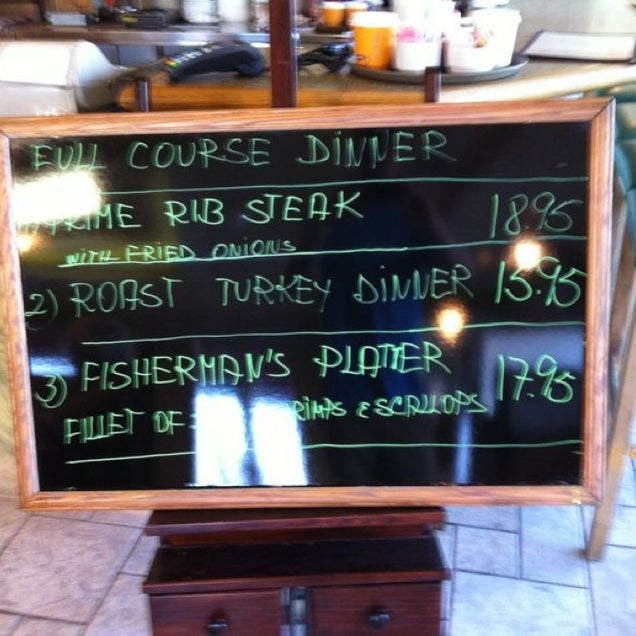 FULL COURSE DINNER
PRIME RIB STEAK 18.95
WITH FRIED ONIONS
2) ROAST TURKEY DINNER 15.95
3) FISHERMAN'S PLATTER 17.95
FILLET OF & SCALLOPS